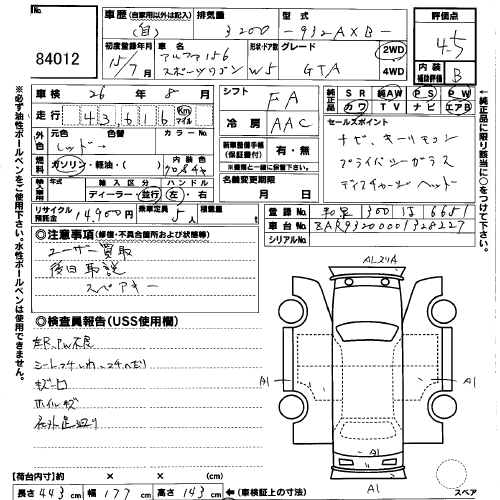 No.
84012
車歴 (自家用以外は記入)
(自)
排気量
3200
型式
-932AXB-
評価点
4.5
初度登録年月
15/7月
車名
アルファ156
スポーツワゴン
形状・ドア数
W5
グレード
GTA
2WD
4WD
内装
補助評価
B
車検 26年 8月
走行 43,616 Km マイル
外色 元色 色替 カラーNo.
レッド→
燃料 ガソリン・軽油・( ) 内装色
輸入車用 年式 輸入区分 ハンドル
ディーラー・並行 左・右
リサイクル預託金 14,900円 乗車定員 5人 積載量 kg
シフト FA
冷房 AAC
新車整備手帳(保証書付)
有 無
※車検証と一緒に保管下さい。
名義変更期限
月 日
純正品 SR 純AW PS PW 純正品
カワ TV ナビ エアB
セールスポイント
ナビ、キーリモコン
プライバシーガラス
ディスチャージヘッド
登録No. 1300 は 6651
車台No. ZAR93200001328227
シリアルNo.
◎注意事項(修復・不具合箇所および状態等)
ユーザー買取
後日取説
スペアキー
◎検査員報告(USS使用欄)
左R.PW不良
キズ凹
ホイルキズ
A1
A1
A1
A1
スペア
【荷台内寸】約 × × (cm)
長さ 443cm 幅 177cm 高さ 143cm ←(車検証上の寸法)
※必ず油性ボールペンをご使用下さい。水性ボールペンは使用できません。
※純正品に限り該当に○をつけて下さい。